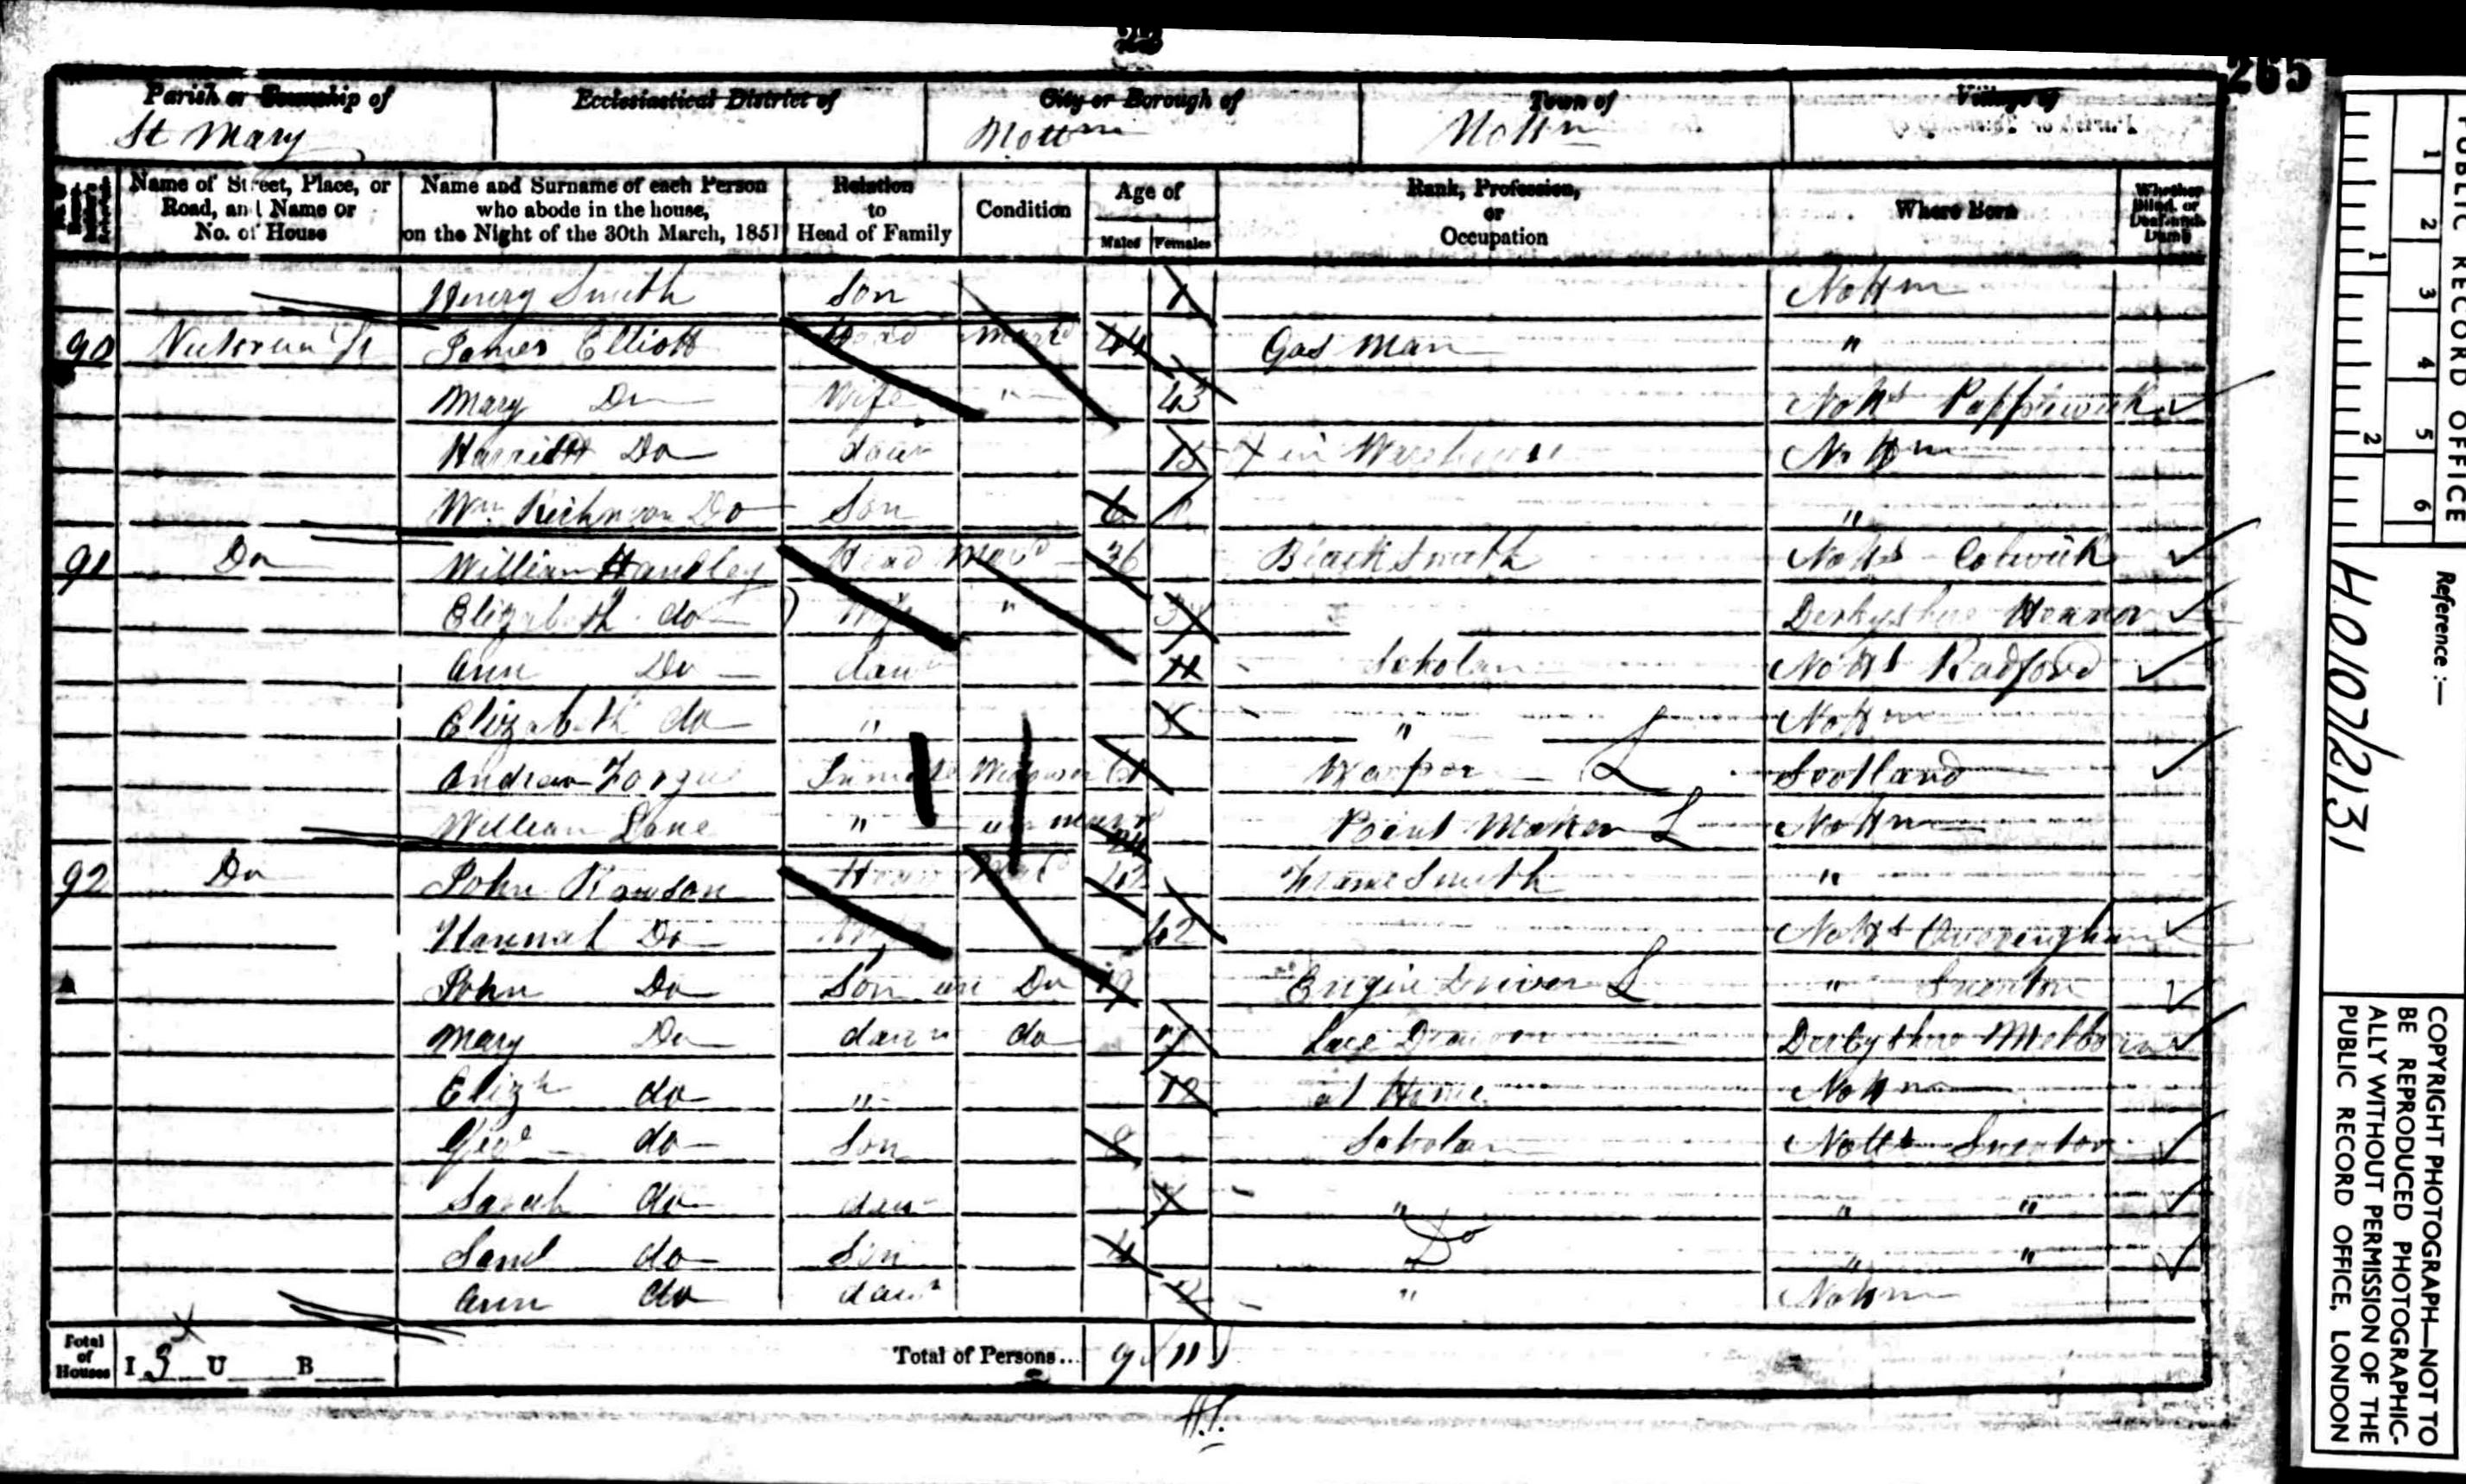 265
Parish or Township of Ecclesiastical District of City or Borough of Town of Village of
St Mary Nottm Nottm
Name of Street, Place, or Road, and Name or No. of House
Name and Surname of each Person who abode in the house, on the Night of the 30th March, 1851
Relation to Head of Family
Condition
Age of
Males Females
Rank, Profession, or Occupation
Where Born
Whether Blind, or Deaf-and-Dumb
Henry Smith Son 1 Nottm
90 James Elliott Head Mard 44 Gas Man "
Mary Do Wife " 43 Notts Papplewick
Harriett Do daur 15 in Warehouse Nottm
Wm Do Son 6 "
91 Do William Handley Head Mard 36 Blacksmith Notts Colwick
Elizabeth do Wife " Derbyshire Heanor
Ann Do daur Scholar Notts Radford
Elizabeth do " " Nottm
Andrew Inmate Widower Warper Scotland
William Lane " unmard 24 Point Maker Nottm
92 Do John Rawson Head Mard 42 Framesmith "
Hannah Do Wife 42 Notts
John Do Son un Do 19 Engine Driver " Sneinton
Mary Do daur do 17 Lace Drawer Derbyshire Melborne
Elizh do " 12 at Home Nottm
Geo do Son 8 Scholar Notts Sneinton
Sarah do daur " " "
Saml do Son 4 Do " "
Ann do daur 2 " Nottm
Total of Houses I 3 U B Total of Persons... 9 11
PUBLIC RECORD OFFICE
1 2 3 4 5 6
1 2
Reference :—
HO107/2131
COPYRIGHT PHOTOGRAPH—NOT TO
BE REPRODUCED PHOTOGRAPHIC-
ALLY WITHOUT PERMISSION OF THE
PUBLIC RECORD OFFICE, LONDON